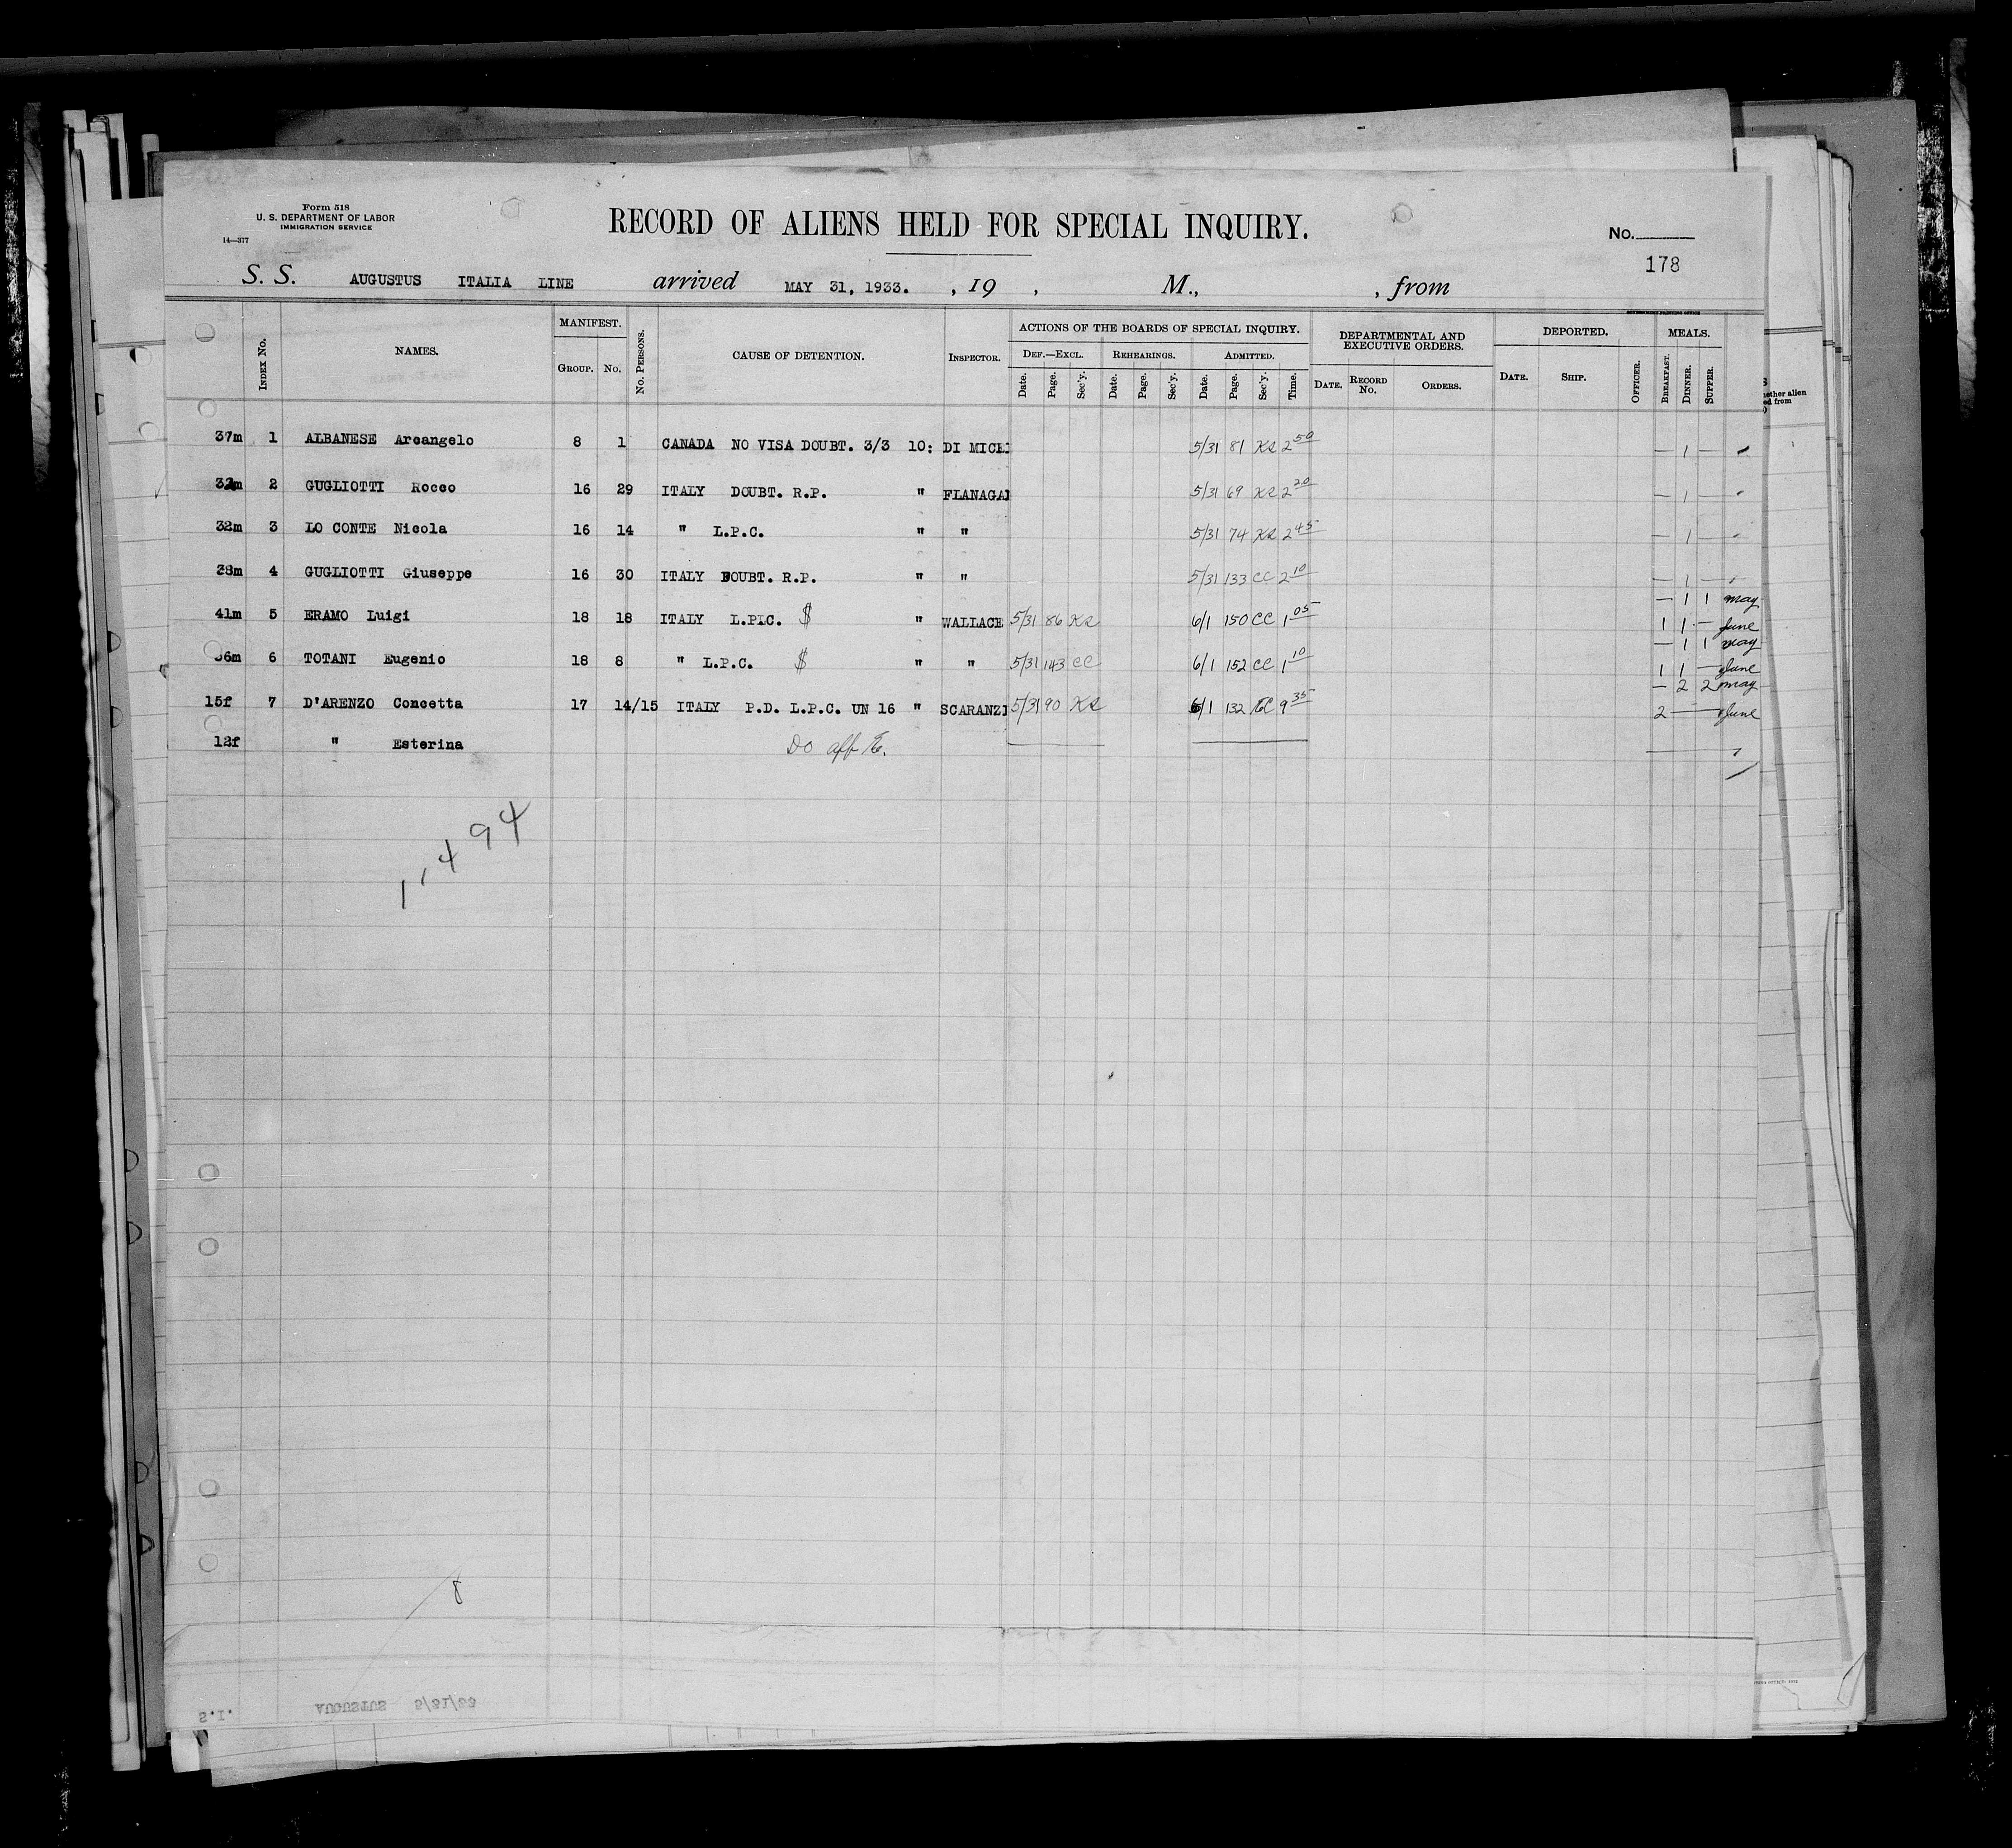 Form 518
U. S. DEPARTMENT OF LABOR
IMMIGRATION SERVICE
14—377
RECORD OF ALIENS HELD FOR SPECIAL INQUIRY.
No.
178
S. S. AUGUSTUS ITALIA LINE arrived MAY 31, 1933. , 19 , M., , from
INDEX No. NAMES. MANIFEST. GROUP. No. No. PERSONS. CAUSE OF DETENTION. INSPECTOR. ACTIONS OF THE BOARDS OF SPECIAL INQUIRY. DEF.—EXCL. Date. Page. Sec'y. REHEARINGS. Date. Page. Sec'y. ADMITTED. Date. Page. Sec'y. Time. DEPARTMENTAL AND EXECUTIVE ORDERS. DATE. RECORD No. ORDERS. DEPORTED. DATE. SHIP. OFFICER. MEALS. BREAKFAST. DINNER. SUPPER.
37m 1 ALBANESE Arcangelo 8 1 CANADA NO VISA DOUBT. 3/3 10: DI MICEI 5/31 81 KR 2 50 — 1 —
32m 2 GUGLIOTTI Rocco 16 29 ITALY DOUBT. R.P. " FLANAGAN 5/31 69 KR 2 20 — 1 —
32m 3 LO CONTE Nicola 16 14 " L.P.C. " " 5/31 74 KR 2 45 — 1 —
38m 4 GUGLIOTTI Giuseppe 16 30 ITALY DOUBT. R.P. " " 5/31 133 CC 2 10 — 1 —
41m 5 ERAMO Luigi 18 18 ITALY L.P.C. $ " WALLACE 5/31 86 KR 6/1 150 CC 1 05 — 1 1 May
1 1 — June
36m 6 TOTANI Eugenio 18 8 " L.P.C. $ " " 5/31 143 CC 6/1 152 CC 1 10 — 1 1 May
1 1 — June
15f 7 D'ARENZO Concetta 17 14/15 ITALY P.D. L.P.C. UN 16 " SCARANZI 5/31 90 KR 6/1 132 CC 9 35 — 2 2 May
2 — June
12f " Esterina Do aff
11494
8
S.I. AUGUSTUS 5/31/33